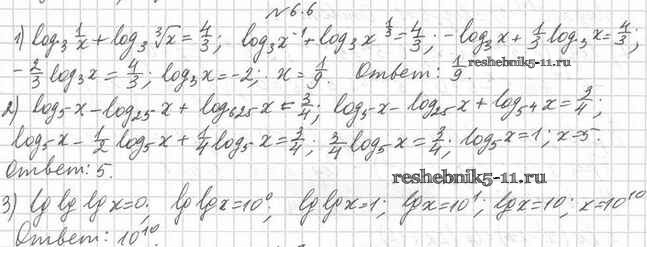 №6.6
1) log₃ 1/x + log₃ ∛x = 4/3; log₃x⁻¹ + log₃x^(1/3) = 4/3; -log₃x + 1/3 log₃x = 4/3;
-2/3 log₃x = 4/3; log₃x = -2; x = 1/9. Ответ: 1/9.
reshebnik5-11.ru
2) log₅x - log₂₅x + log₆₂₅x = 3/4; log₅x - log₂₅x + log₅4 x = 3/4;
log₅x - 1/2 log₅x + 1/4 log₅x = 3/4; 3/4 log₅x = 3/4; log₅x = 1; x = 5.
Ответ: 5.
reshebnik5-11.ru
3) lg lg lg x = 0; lg lg x = 10⁰; lg lg x = 1; lg x = 10¹; lg x = 10; x = 10¹⁰
Ответ: 10¹⁰.